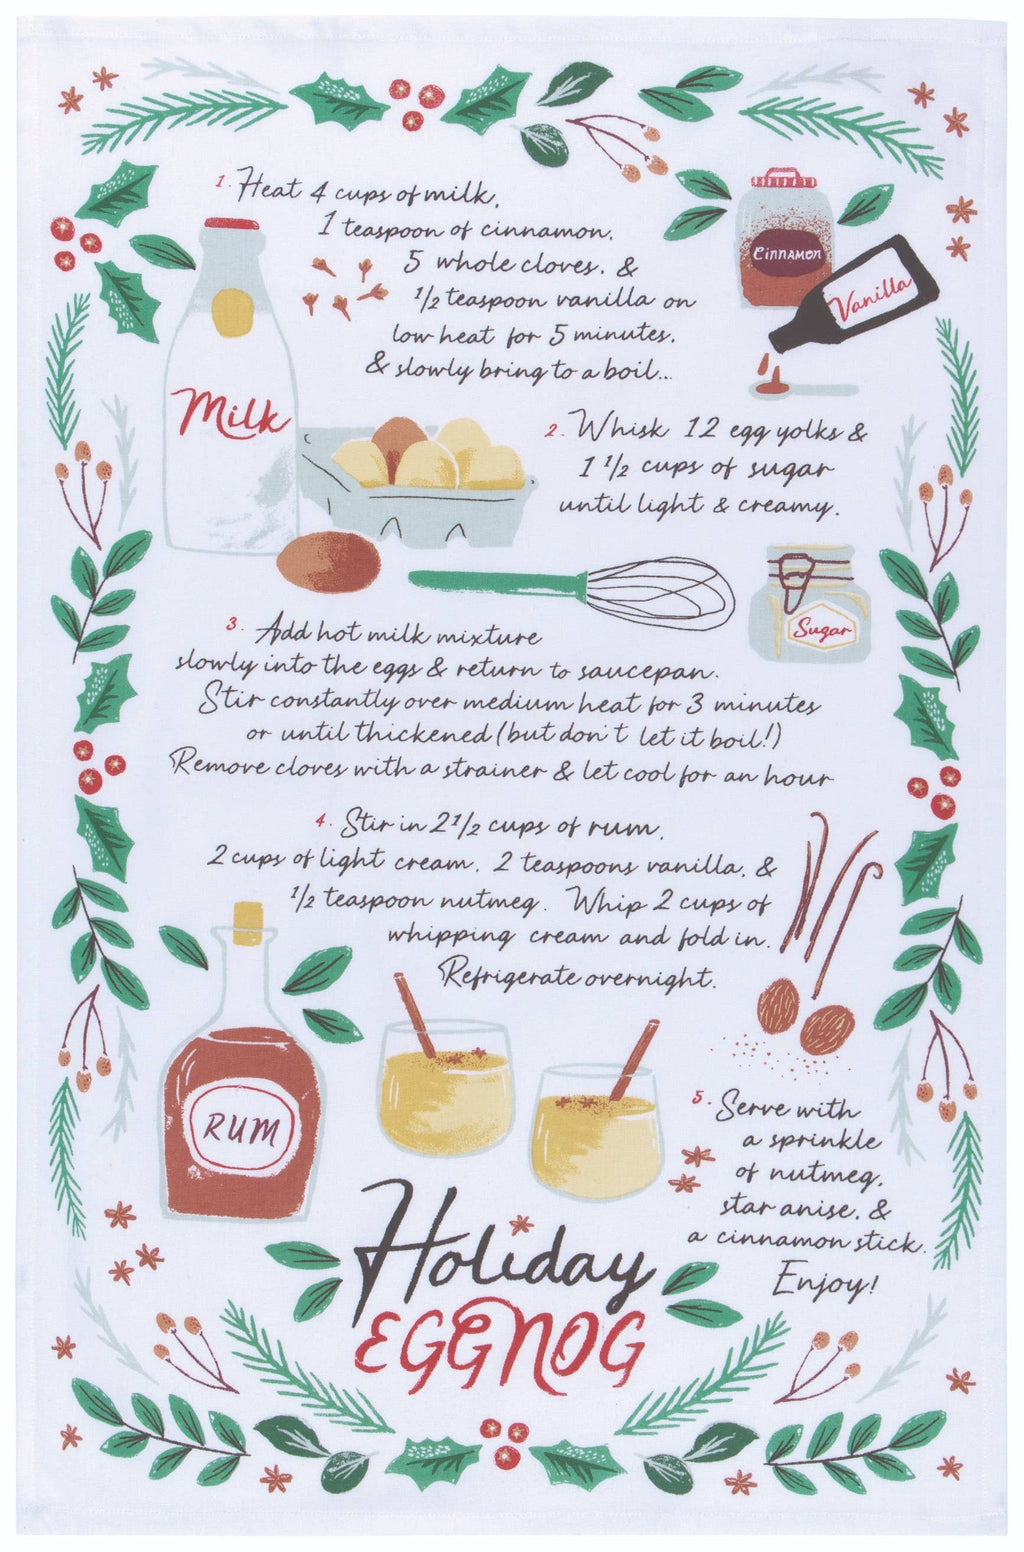 1. Heat 4 cups of milk,
1 teaspoon of cinnamon,
5 whole cloves, &
1/2 teaspoon vanilla on
low heat for 5 minutes,
& slowly bring to a boil...
Cinnamon
Vanilla
Milk
2. Whisk 12 egg yolks &
1 1/2 cups of sugar
until light & creamy.
Sugar
3. Add hot milk mixture
slowly into the eggs & return to saucepan.
Stir constantly over medium heat for 3 minutes
or until thickened (but don't let it boil!)
Remove cloves with a strainer & let cool for an hour
4. Stir in 2 1/2 cups of rum,
2 cups of light cream, 2 teaspoons vanilla, &
1/2 teaspoon nutmeg. Whip 2 cups of
whipping cream and fold in.
Refrigerate overnight.
RUM
5. Serve with
a sprinkle
of nutmeg,
star anise, &
a cinnamon stick.
Enjoy!
Holiday
EGGNOG